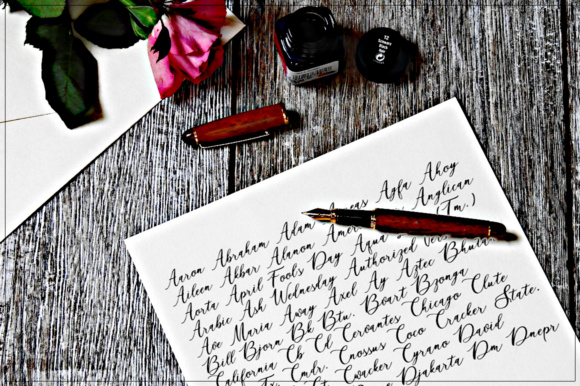 Aaron Abraham Adam Aeneas Agfa Ahoy
Aileen Akbar Alanon Anglican
Aorta April Fools Day Aqua (Tm.)
Arabic Ash Wednesday Authorized
Ave Maria Away Axel Ay Aztec Bhutan
Bill Bjorn Bk Btu. Boart Bzonga
California Cb Cd Cervantes Chicago Clute
Cmdr. Cnossus Coco Cracker State.
Cwacker Cyrano David
Djakarta Dm Dnepr